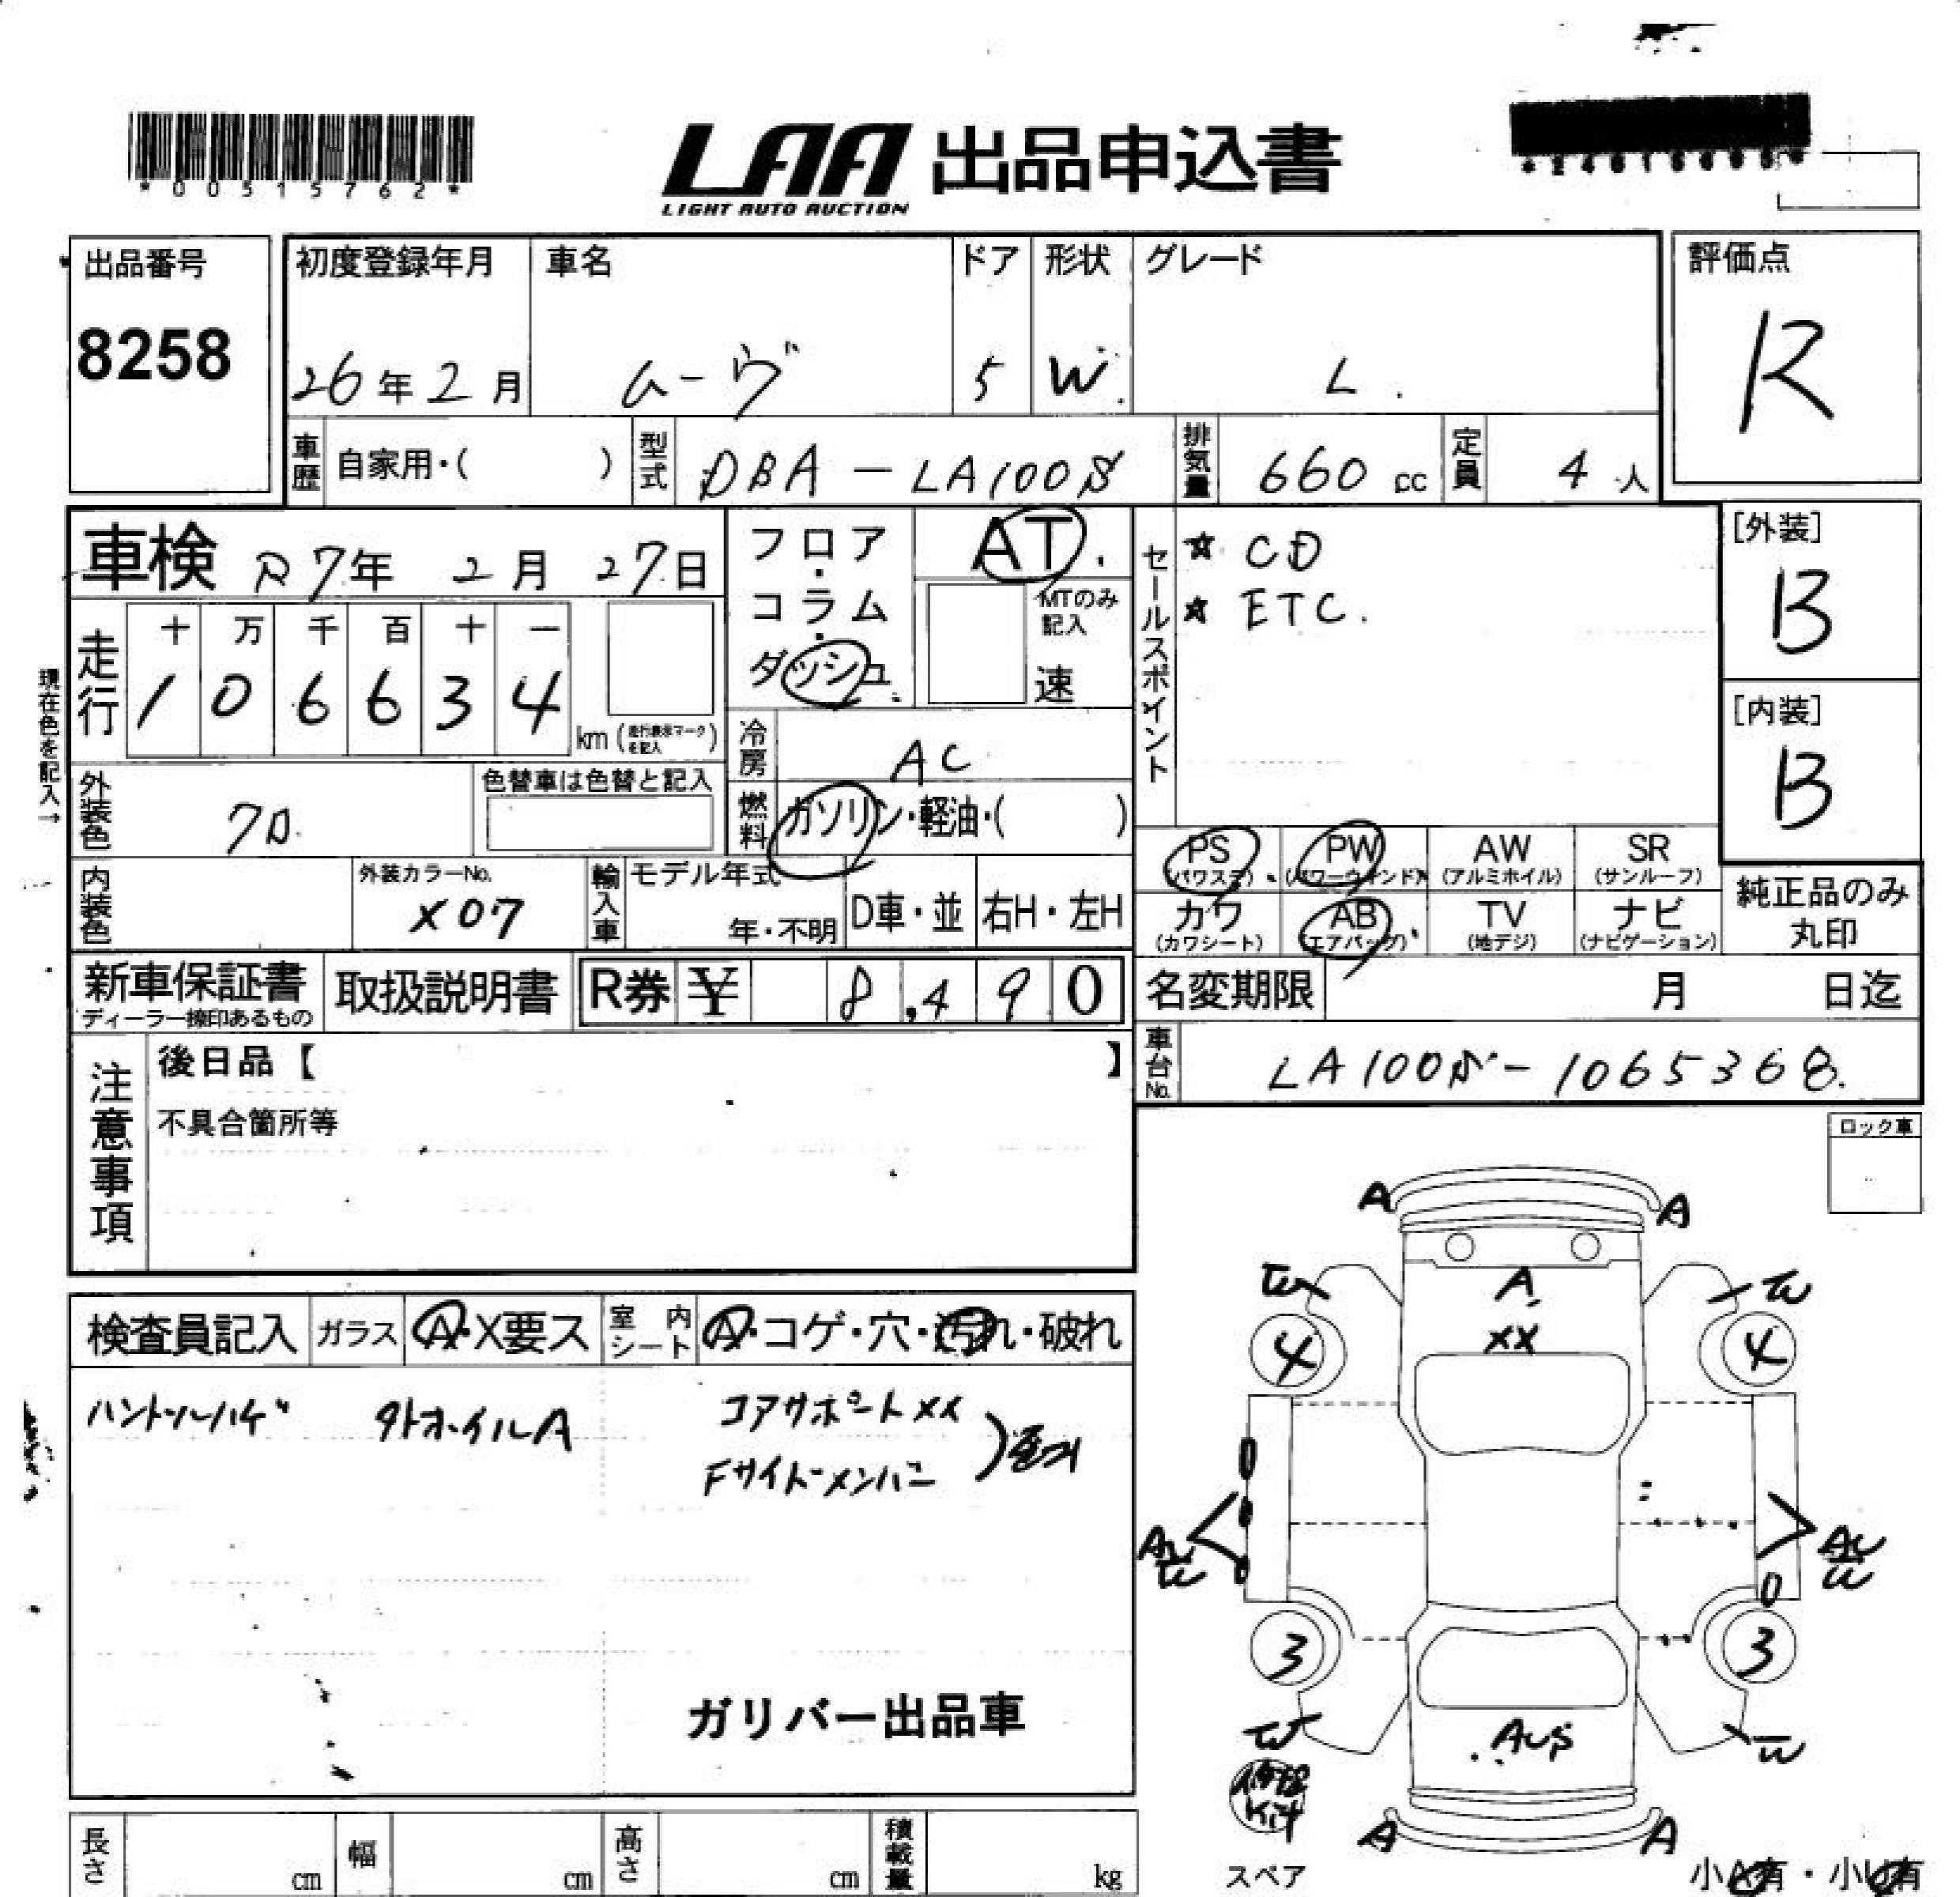 *00515762*
LAA 出品申込書
LIGHT AUTO AUCTION
出品番号
8258
初度登録年月 車名 ドア 形状 グレード
26年2月 ムーヴ 5 W. L.
評価点
R
車歴 自家用・( ) 型式 DBA-LA100S 排気量 660 cc 定員 4人
車検 R7年 2月 27日
フロア・コラム・ダッシュ
AT
MTのみ記入
速
セールスポイント
☆ CD
☆ ETC.
[外装]
B
[内装]
B
現在色を記入→
走行
十 万 千 百 十 一
1 0 6 6 3 4
km (走行表示マークを記入)
冷房 AC
燃料 ガソリン・軽油・( )
外装色 クロ
色替車は色替と記入
内装色
外装カラーNo.
X07
輸入車 モデル年式
年・不明
D車・並 右H・左H
PS (パワステ) PW (パワーウィンド) AW (アルミホイル) SR (サンルーフ)
カワ (カワシート) AB (エアバッグ) TV (地デジ) ナビ (ナビゲーション)
純正品のみ
丸印
新車保証書
ディーラー捺印あるもの
取扱説明書
R券 ¥ 8,490
名変期限 月 日迄
車台No. LA100S-1065368.
注意事項
後日品【 】
不具合箇所等
ロック車
検査員記入 ガラス A・X要ス 室内シート A・コゲ・穴・汚れ・破れ
ハンドルハゲ タイヤホイルA コアサポートXX
Fサイドメンバー
ガリバー出品車
A A
W W
A
XX
4 4
3 3
W W
A A
修理
Kit
スペア
小A有・小U有
長さ cm 幅 cm 高さ cm 積載量 kg